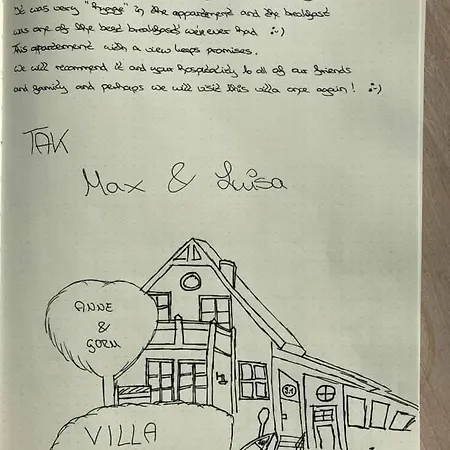 It was very "hygge" in the appartment and the breakfast
was one of the best breakfasts we've ever had :-)
This apartement with a view keeps promises.
We will recommend it and your hospitality to all of our friends
and family and perhaps we will visit this villa once again! :-)
TAK
Max & Luisa
ANNE
&
GORM
VILLA